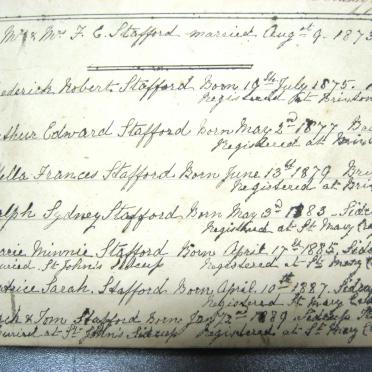 Mr & Mrs F. C. Stafford married Augst 9. 1873
ederick Robert Stafford Born 19th July 1875.
Registered at Brixton
thur Edward Stafford Born May 2nd 1877 Bri
Registered at Brix
ella Frances Stafford Born June 13th 1879 Bri
Registered at Bri
alph Sydney Stafford Born May 3rd 1883 - Sidcup
Registered at St Mary Cra
arie Minnie Stafford Born April 17th 1885. Sidcup
uried St John's Sidcup Registered at St Mary Cra
atrice Sarah Stafford Born April 10th 1887. Sidcup
Registered St Mary
ck & Tom Stafford Born Jany 2nd 1889 Sidcup
uried at St John's Sidcup Registered at St Mary C